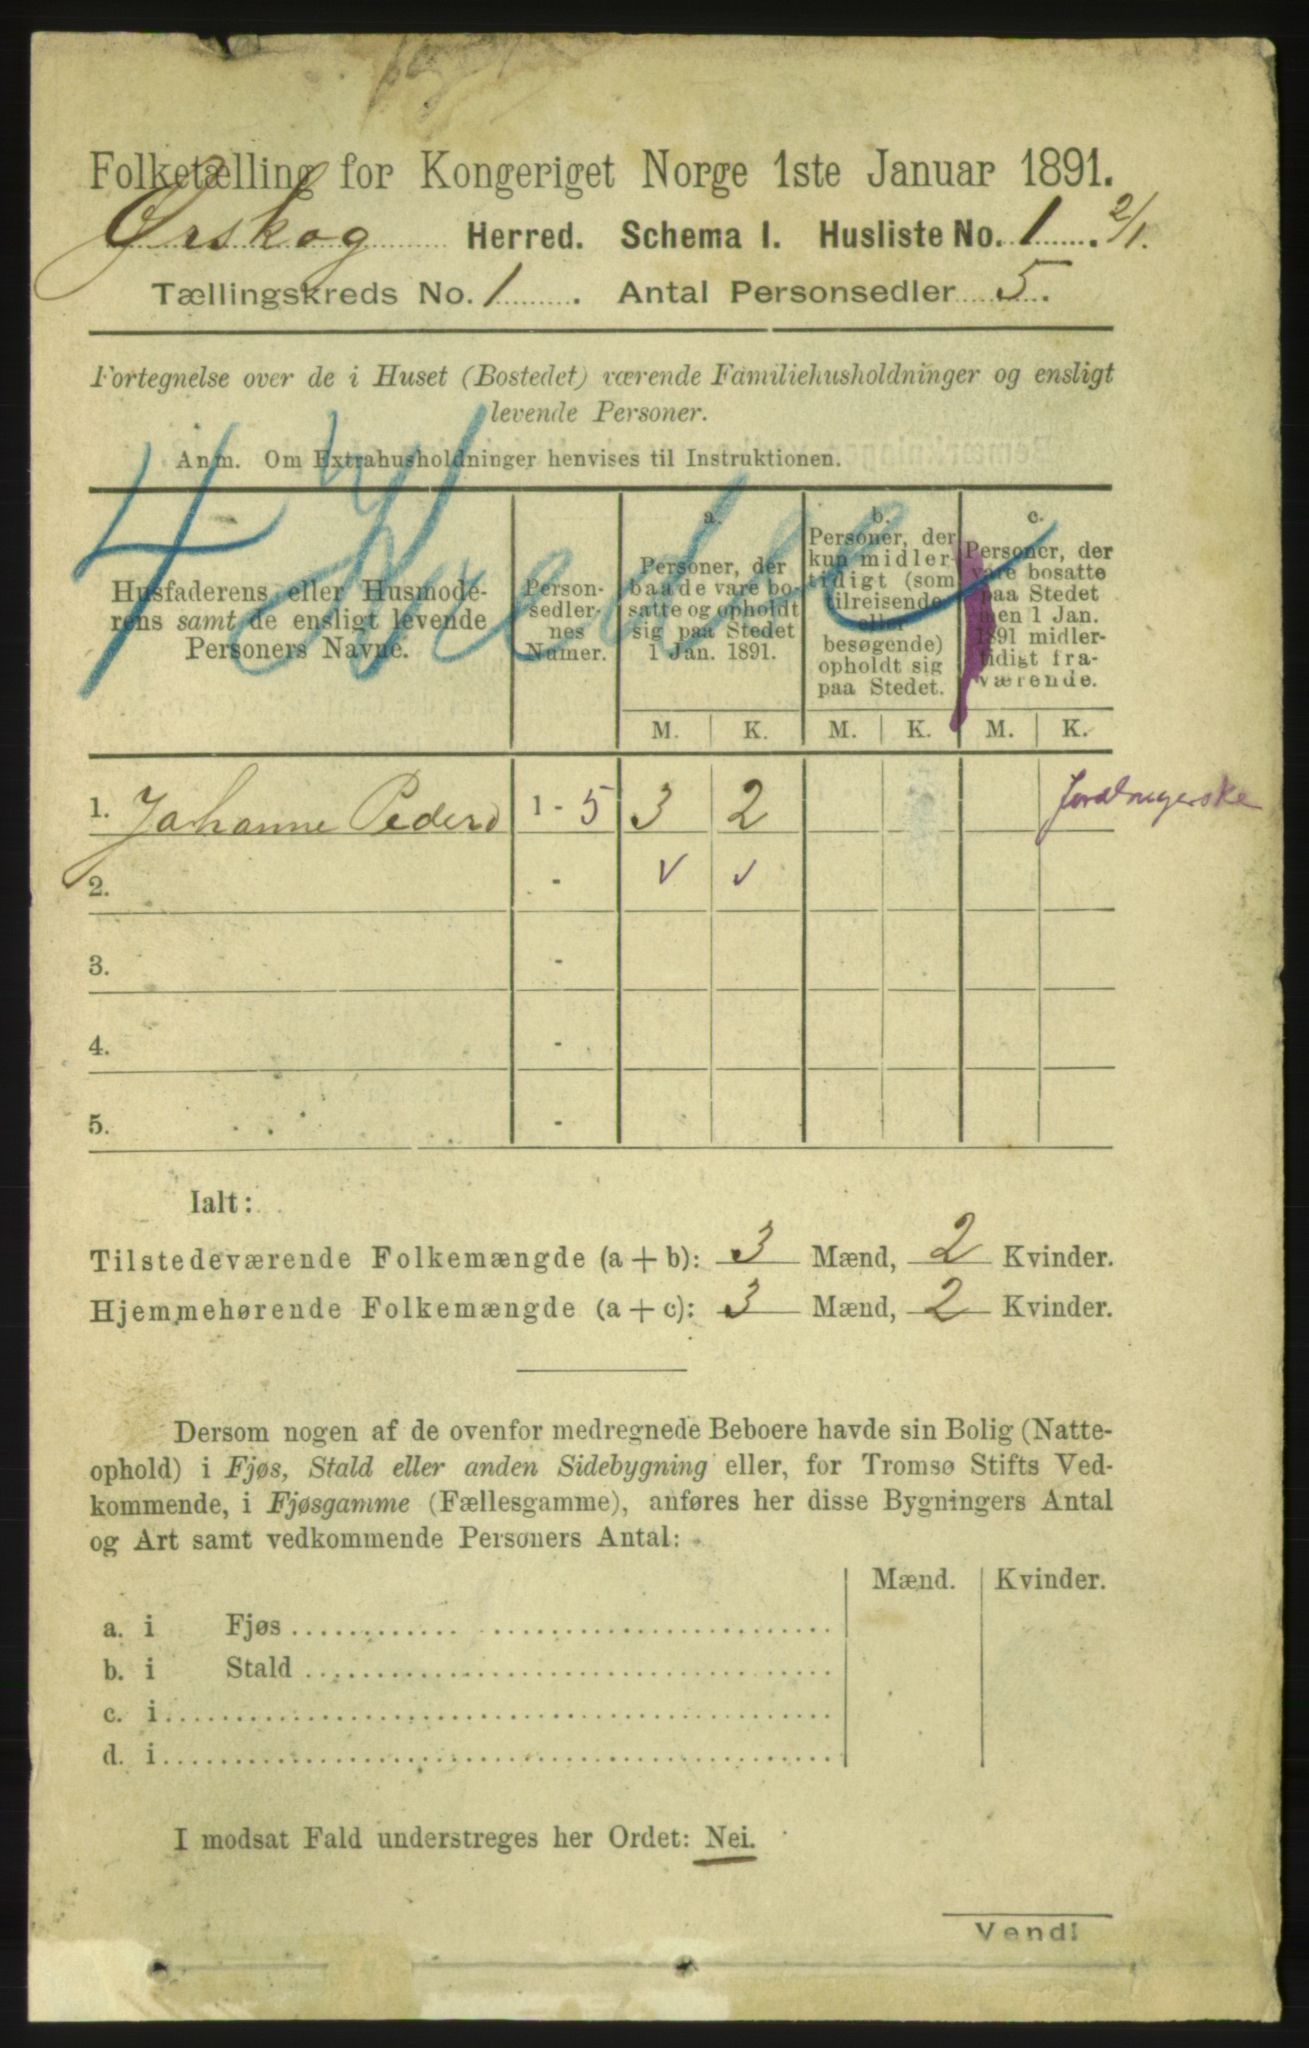 Folketælling for Kongeriget Norge 1ste Januar 1891.
Ørskog Herred. Schema I. Husliste No. 1. 2/1.
Tællingskreds No. 1. Antal Personsedler 5.
Fortegnelse over de i Huset (Bostedet) værende Familiehusholdninger og ensligt
levende Personer.
Anm. Om Extrahusholdninger henvises til Instruktionen.
4 Kredse
Husfaderens eller Husmode-
rens samt de ensligt levende
Personers Navne.
Person-
sedler-
nes
Numer.
a.
Personer, der
baade vare bo-
satte og opholdt
sig paa Stedet
1 Jan. 1891.
b.
Personer, der
kun midler-
tidigt (som
tilreisende
eller
besøgende)
opholdt sig
paa Stedet.
c.
Personer, der
vare bosatte
paa Stedet
men 1 Jan.
1891 midler-
tidigt fra-
værende.
M. K. M. K. M. K.
1. Johanne Pedersd 1 - 5 3 2 Jordbrugerske
2. - v v
3. -
4. -
5. -
Ialt:
Tilstedeværende Folkemængde (a + b): 3 Mænd, 2 Kvinder.
Hjemmehørende Folkemængde (a + c): 3 Mænd, 2 Kvinder.
Dersom nogen af de ovenfor medregnede Beboere havde sin Bolig (Natte-
ophold) i Fjøs, Stald eller anden Sidebygning eller, for Tromsø Stifts Ved-
kommende, i Fjøsgamme (Fællesgamme), anføres her disse Bygningers Antal
og Art samt vedkommende Personers Antal:
Mænd. Kvinder.
a. i Fjøs
b. i Stald
c. i
d. i
I modsat Fald understreges her Ordet: Nei.
Vend!